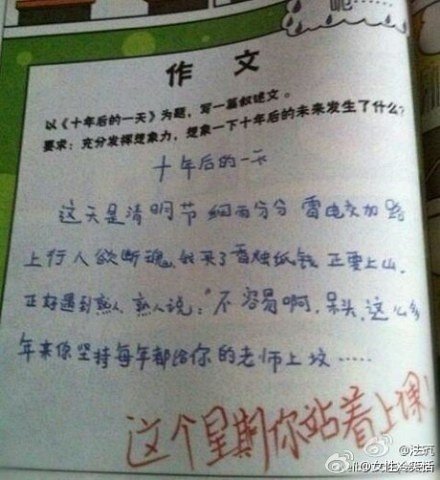 呃……
作 文
以《十年后的一天》为题，写一篇叙述文。
要求：充分发挥想象力，想象一下十年后的未来发生了什么？
十年后的一天
这天是清明节 细雨分分 雷电交加 路
上行人欲断魂，我买了香烛纸钱 正要上山，
正好遇到熟人，熟人说："不容易啊，呆头，这么多
年来你坚持每年都给你的老师上坟……
这个星期你站着上课！
@法克
@女性冷笑话